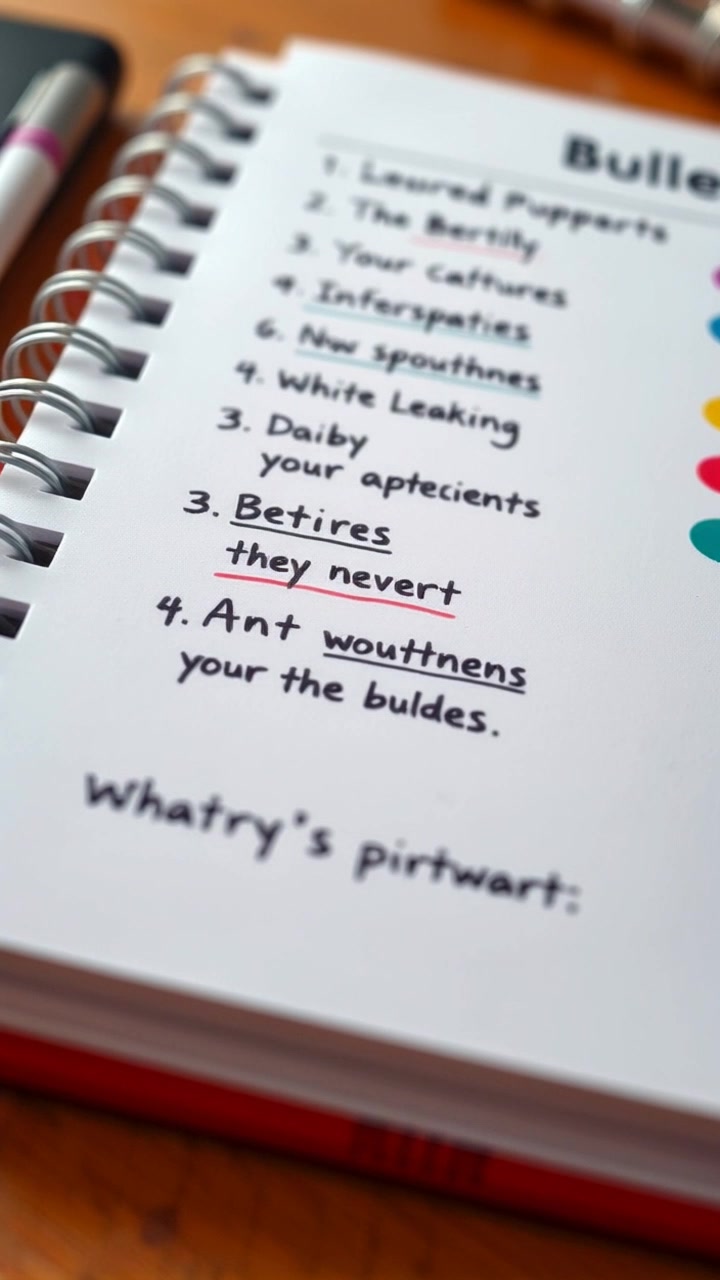 Bulle
1. Leured Pupperts
2. The Bertily
3. Your caftures
4. Inferspaties
6. Nw spouthnes
4. White Leaking
3. Daiby
your aptecients
3. Betires
they nevert
4. Ant wouttnens
your the buldes.
Whatry's pirtwart: